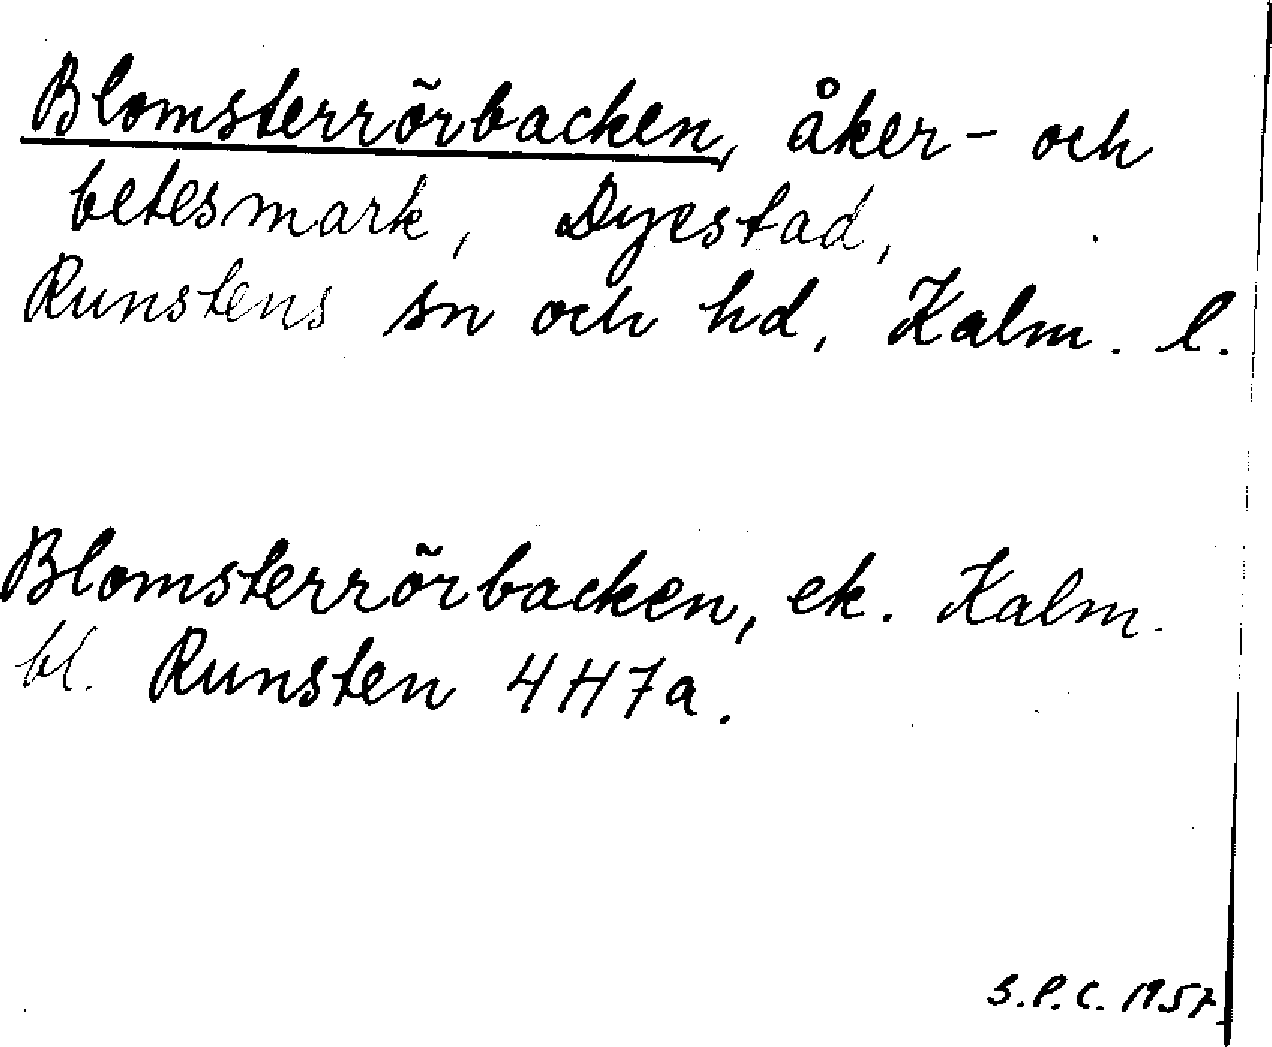 Blomsterrörbacken, åker- och
betesmark, Dyestad,
Runstens sn och hd, Kalm. l.
Blomsterrörbacken, ek. Kalm.
bl. Runsten 4H7a.
S.P.C. 1957.